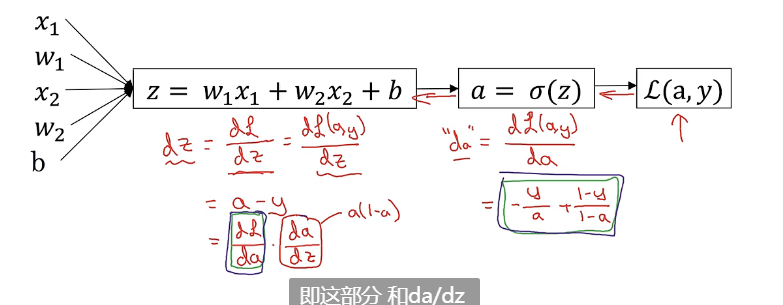 x₁
w₁
x₂
w₂
b
z = w₁x₁ + w₂x₂ + b
a = σ(z)
ℒ(a, y)
dz = dℒ/dz = dℒ(a,y)/dz
= a - y
= dℒ/da · da/dz
a(1-a)
"da" = dℒ(a,y)/da
= -y/a + 1-y/1-a
即这部分 和da/dz